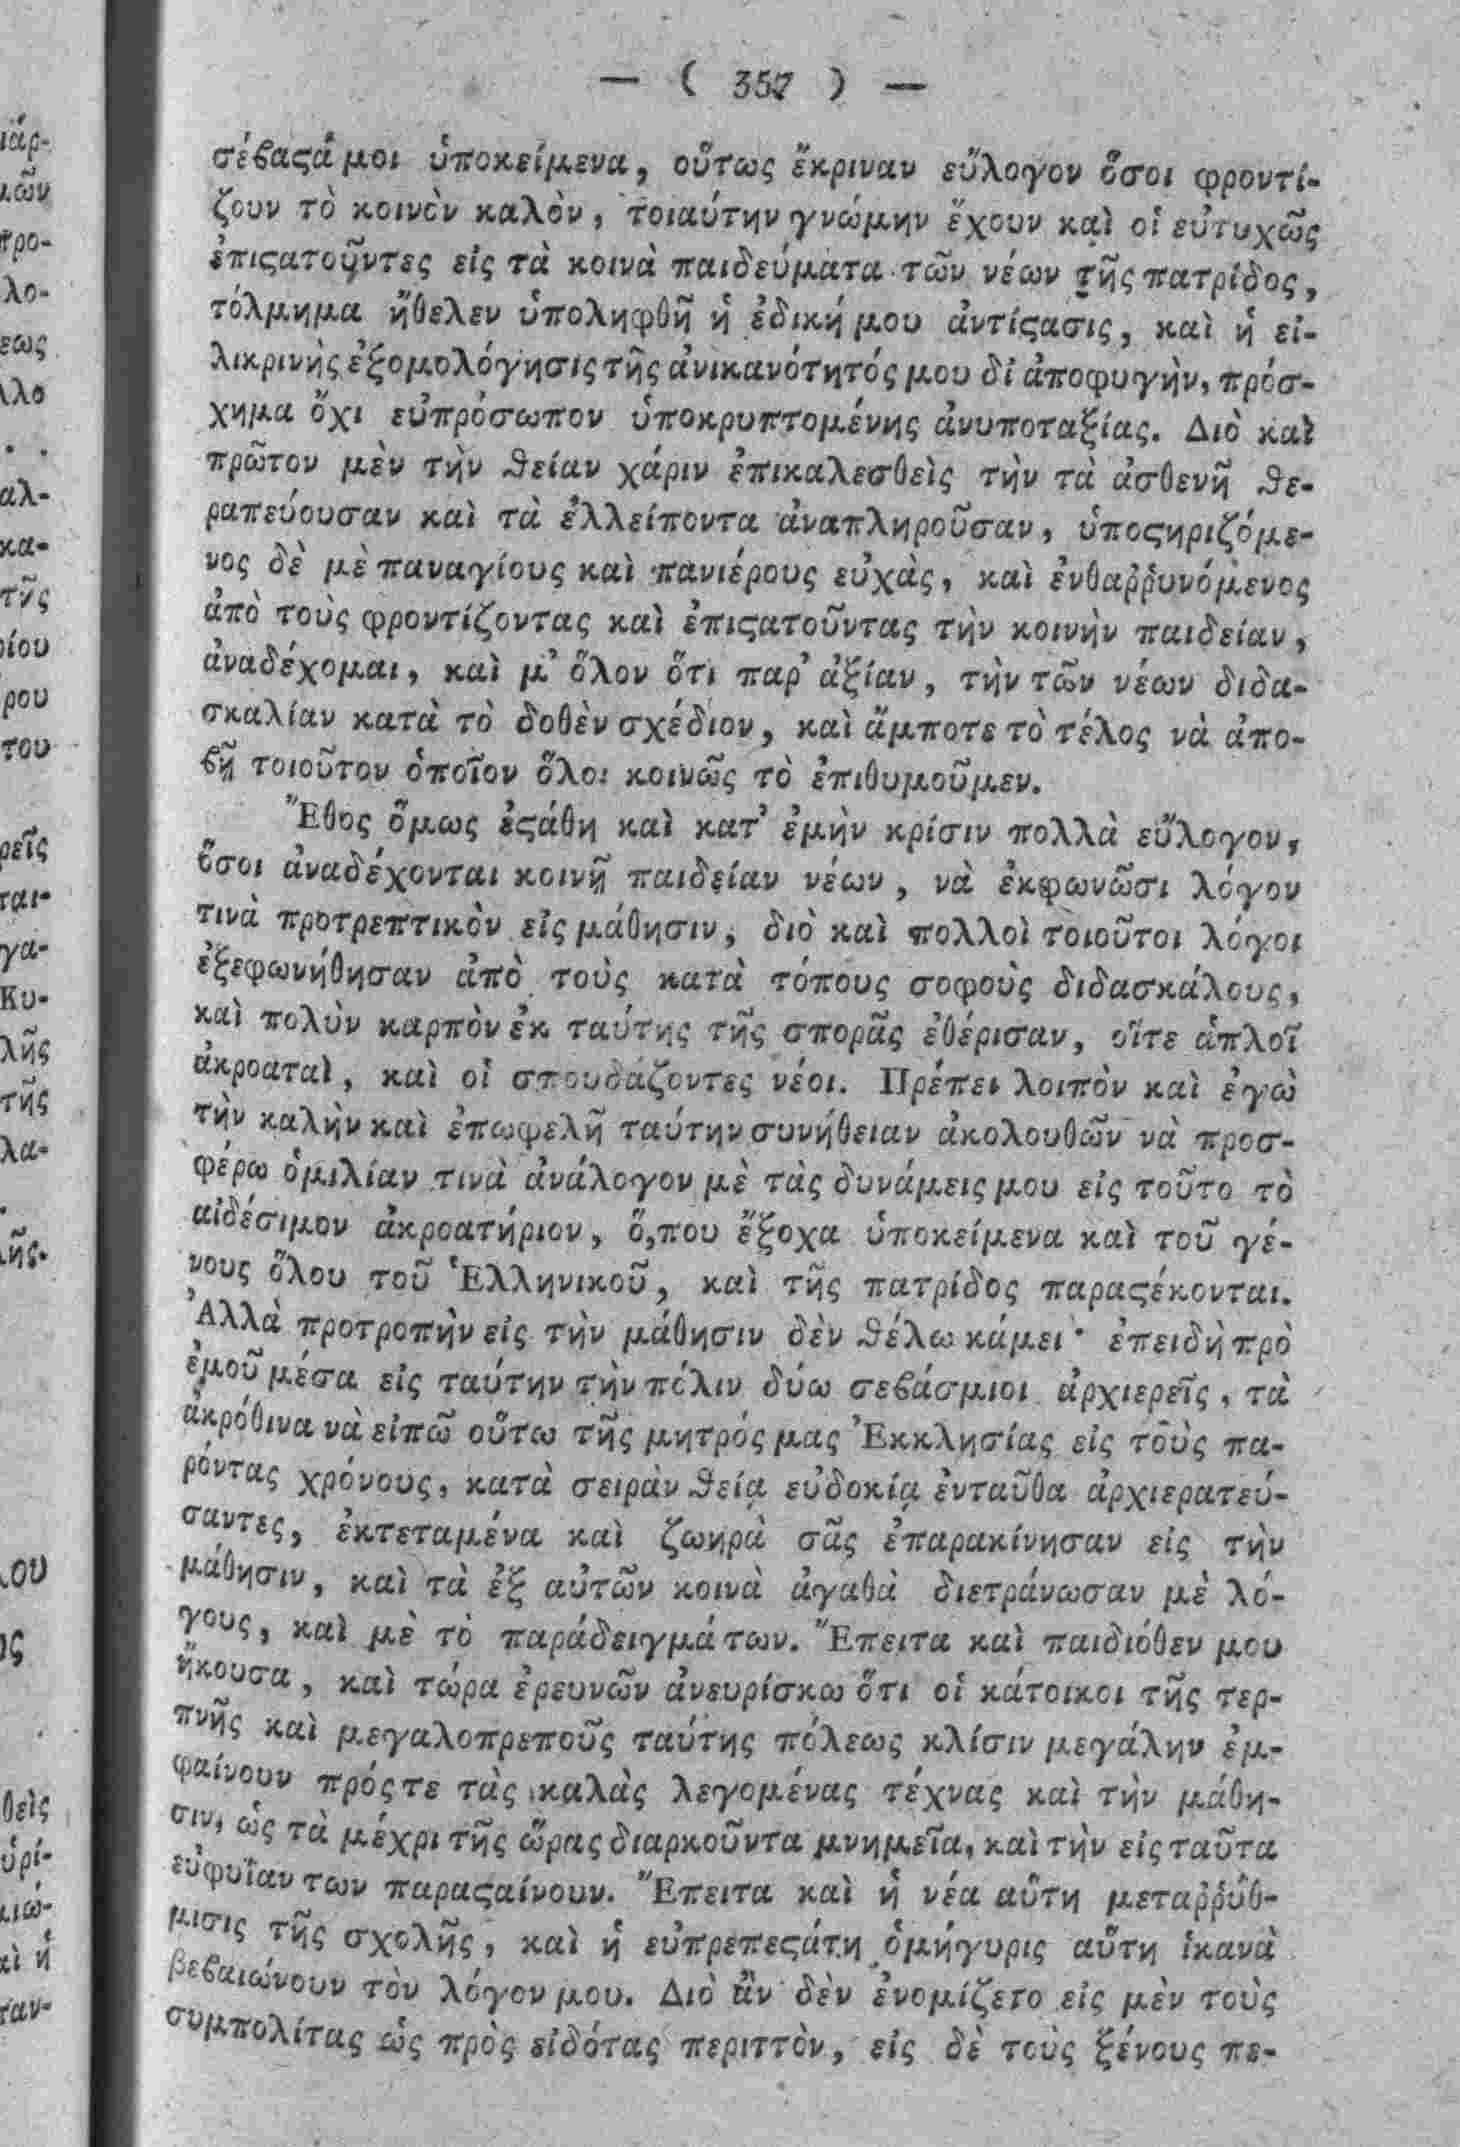 — ( 357 ) —
σέβαϛά μοι ὑποκείμενα, οὕτως ἔκριναν εὔλογον ὅσοι φροντί-
ζουν τὸ κοινὸν καλὸν, τοιαύτην γνώμην ἔχουν καὶ οἱ εὐτυχῶς
ἐπιϛατοῦντες εἰς τὰ κοινὰ παιδεύματα τῶν νέων τῆς πατρίδος,
τόλμημα ἤθελεν ὑποληφθῆ ἡ ἐδική μου ἀντίϛασις, καὶ ἡ εἰ-
λικρινὴς ἐξομολόγησις τῆς ἀνικανότητός μου δι' ἀποφυγὴν, πρόσ-
χημα ὄχι εὐπρόσωπον ὑποκρυπτομένης ἀνυποταξίας. Διὸ καὶ
πρῶτον μὲν τὴν θείαν χάριν ἐπικαλεσθεὶς τὴν τὰ ἀσθενῆ θε-
ραπεύουσαν καὶ τὰ ἐλλείποντα ἀναπληροῦσαν, ὑποϛηριζόμε-
νος δὲ μὲ παναγίους καὶ πανιέρους εὐχὰς, καὶ ἐνθαῤῥυνόμενος
ἀπὸ τοὺς φροντίζοντας καὶ ἐπιϛατοῦντας τὴν κοινὴν παιδείαν,
ἀναδέχομαι, καὶ μ' ὅλον ὅτι παρ' ἀξίαν, τὴν τῶν νέων διδα-
σκαλίαν κατὰ τὸ δοθὲν σχέδιον, καὶ ἄμποτε τὸ τέλος νὰ ἀπο-
βῆ τοιοῦτον ὁποῖον ὅλοι κοινῶς τὸ ἐπιθυμοῦμεν.
Ἔθος ὅμως ἐϛάθη καὶ κατ' ἐμὴν κρίσιν πολλὰ εὔλογον,
ὅσοι ἀναδέχονται κοινῇ παιδείαν νέων, νὰ ἐκφωνῶσι λόγον
τινὰ προτρεπτικὸν εἰς μάθησιν, διὸ καὶ πολλοὶ τοιοῦτοι λόγοι
ἐξεφωνήθησαν ἀπὸ τοὺς κατὰ τόπους σοφοὺς διδασκάλους,
καὶ πολὺν καρπὸν ἐκ ταύτης τῆς σπορᾶς ἐθέρισαν, οἵτε ἁπλοῖ
ἀκροαταὶ, καὶ οἱ σπουδάζοντες νέοι. Πρέπει λοιπὸν καὶ ἐγὼ
τὴν καλὴν καὶ ἐπωφελῆ ταύτην συνήθειαν ἀκολουθῶν νὰ προσ-
φέρω ὁμιλίαν τινὰ ἀνάλογον μὲ τὰς δυνάμεις μου εἰς τοῦτο τὸ
αἰδέσιμον ἀκροατήριον, ὅ,που ἔξοχα ὑποκείμενα καὶ τοῦ γέ-
νους ὅλου τοῦ Ἑλληνικοῦ, καὶ τῆς πατρίδος παραϛέκονται.
Ἀλλὰ προτροπὴν εἰς τὴν μάθησιν δὲν θέλω κάμει· ἐπειδὴ πρὸ
ἐμοῦ μέσα εἰς ταύτην τὴν πόλιν δύω σεβάσμιοι ἀρχιερεῖς, τὰ
ἀκρόθινα νὰ εἰπῶ οὕτω τῆς μητρός μας Ἐκκλησίας εἰς τοὺς πα-
ρόντας χρόνους, κατὰ σειρὰν θείᾳ εὐδοκίᾳ ἐνταῦθα ἀρχιερατεύ-
σαντες, ἐκτεταμένα καὶ ζωηρὰ σᾶς ἐπαρακίνησαν εἰς τὴν
μάθησιν, καὶ τὰ ἐξ αὐτῶν κοινὰ ἀγαθὰ διετράνωσαν μὲ λό-
γους, καὶ μὲ τὸ παράδειγμά των. Ἔπειτα καὶ παιδιόθεν μου
ἤκουσα, καὶ τώρα ἐρευνῶν ἀνευρίσκω ὅτι οἱ κάτοικοι τῆς τερ-
πνῆς καὶ μεγαλοπρεποῦς ταύτης πόλεως κλίσιν μεγάλην ἐμ-
φαίνουν πρός τε τὰς καλὰς λεγομένας τέχνας καὶ τὴν μάθη-
σιν, ὡς τὰ μέχρι τῆς ὥρας διαρκοῦντα μνημεῖα, καὶ τὴν εἰς ταῦτα
εὐφυΐαν των παραϛαίνουν. Ἔπειτα καὶ ἡ νέα αὕτη μεταῤῥύθ-
μισις τῆς σχολῆς, καὶ ἡ εὐπρεπεϛάτη ὁμήγυρις αὕτη ἱκανὰ
βεβαιώνουν τὸν λόγον μου. Διὸ ἂν δὲν ἐνομίζετο εἰς μὲν τοὺς
συμπολίτας ὡς πρὸς εἰδότας περιττὸν, εἰς δὲ τοὺς ξένους πε-